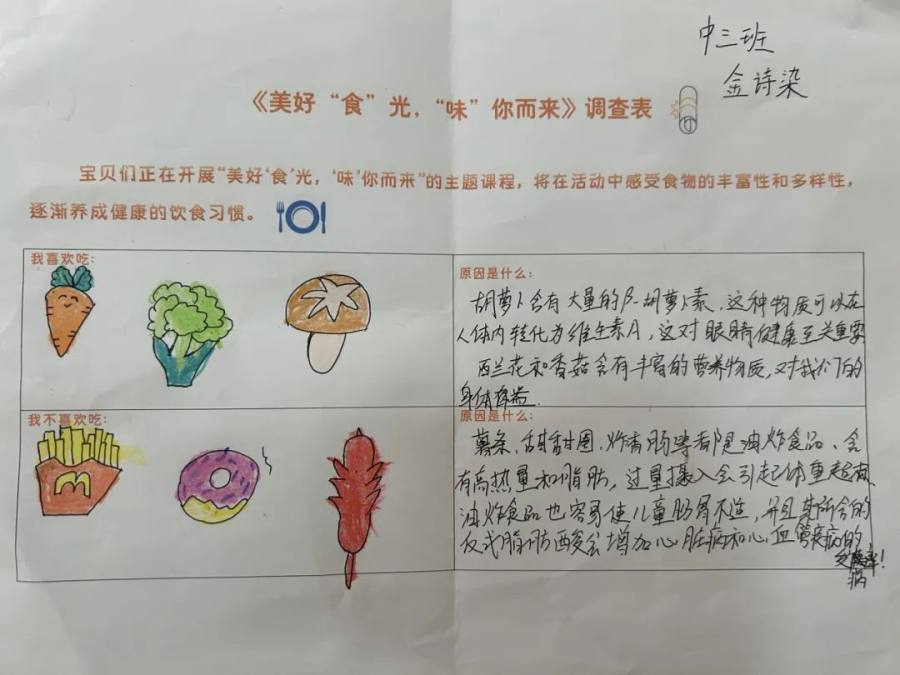 中三班
金诗染
《美好“食”光，“味”你而来》调查表
宝贝们正在开展“美好‘食’光，‘味’你而来”的主题课程，将在活动中感受食物的丰富性和多样性，
逐渐养成健康的饮食习惯。
我喜欢吃：
原因是什么：
胡萝卜含有大量的β-胡萝卜素，这种物质可以在
人体内转化为维生素A，这对眼睛健康至关重要
西兰花和香菇含有丰富的营养物质，对我们的
身体有益.
我不喜欢吃：
原因是什么：
薯条，甜甜圈，炸香肠等都是油炸食品、含
有高热量和脂肪，过量摄入会引起体重超
油炸食品也容易使儿童肠胃不适，并且其所含的
反式脂肪酸会增加心脏病和心血管疾病的